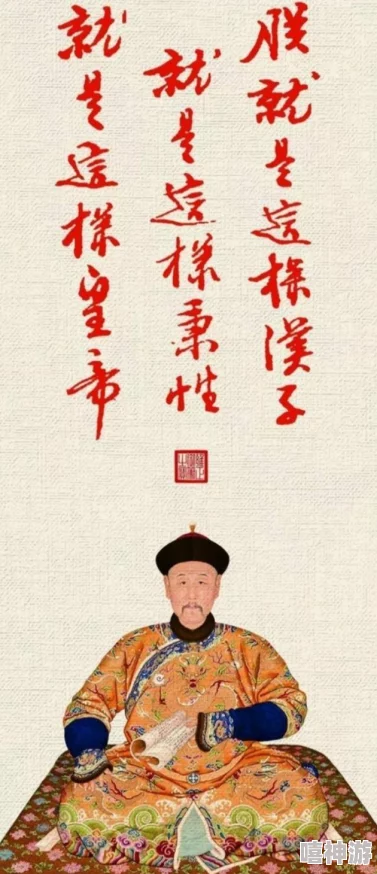 朕就是這樣漢子
就是這樣秉性
就是這樣皇帝
嘻神游